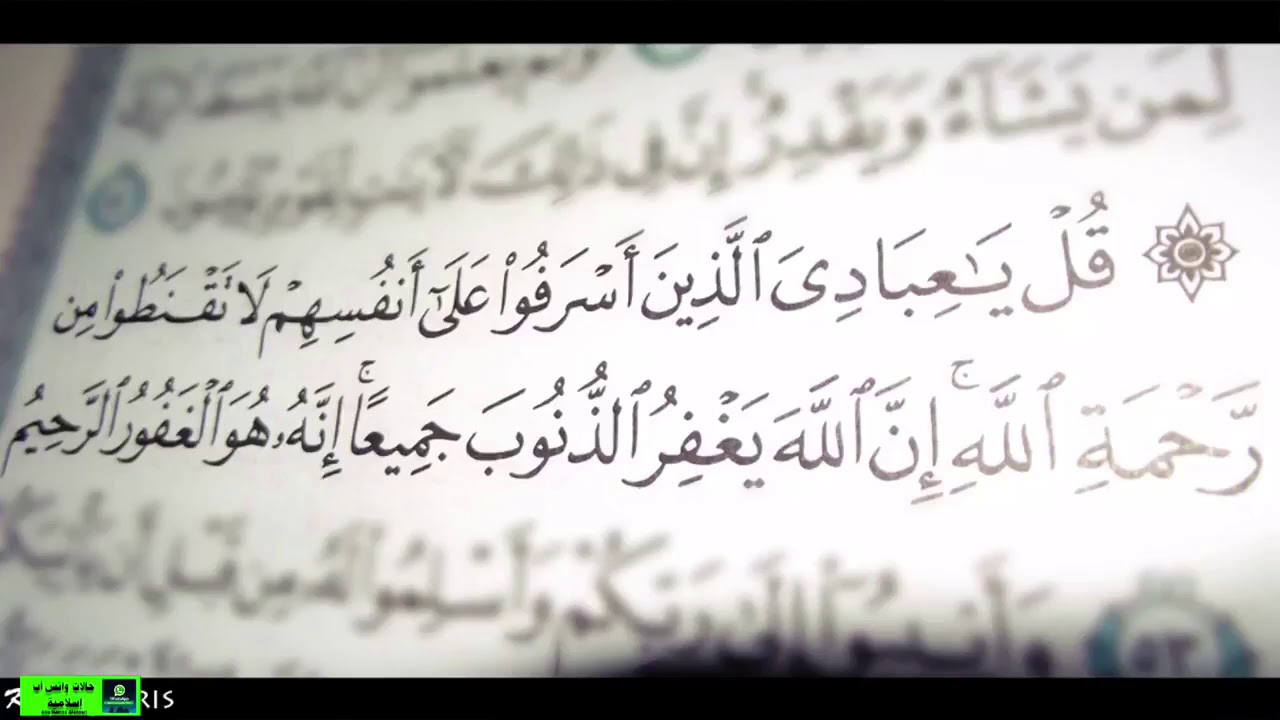 لِمَن يَشَآءُ وَيَقْدِرُ إِنَّ فِى ذَٰلِكَ
قُلْ يَـٰعِبَادِىَ ٱلَّذِينَ أَسْرَفُوا۟ عَلَىٰٓ أَنفُسِهِمْ لَا تَقْنَطُوا۟ مِن
رَّحْمَةِ ٱللَّهِ ۚ إِنَّ ٱللَّهَ يَغْفِرُ ٱلذُّنُوبَ جَمِيعًا ۚ إِنَّهُۥ هُوَ ٱلْغَفُورُ ٱلرَّحِيمُ
٥٣ رَبِّكُمْ وَأَسْلِمُوا۟ لَهُۥ مِن قَبْلِ أَن
حالات واتس اب
إسلامية
WhatsApp
RIS